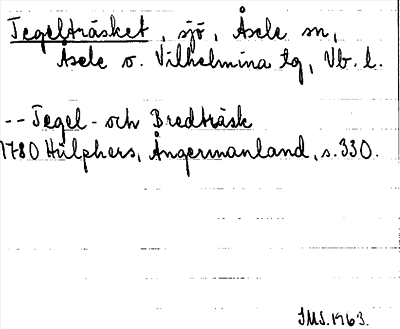 Tegelträsket, sjö, Åsele sn,
Åsele o. Vilhelmina tg, Vb. l.
-- Tegel- och Bredträsk
1780 Hülphers, Ångermanland, s. 330.
IMS. 1963.